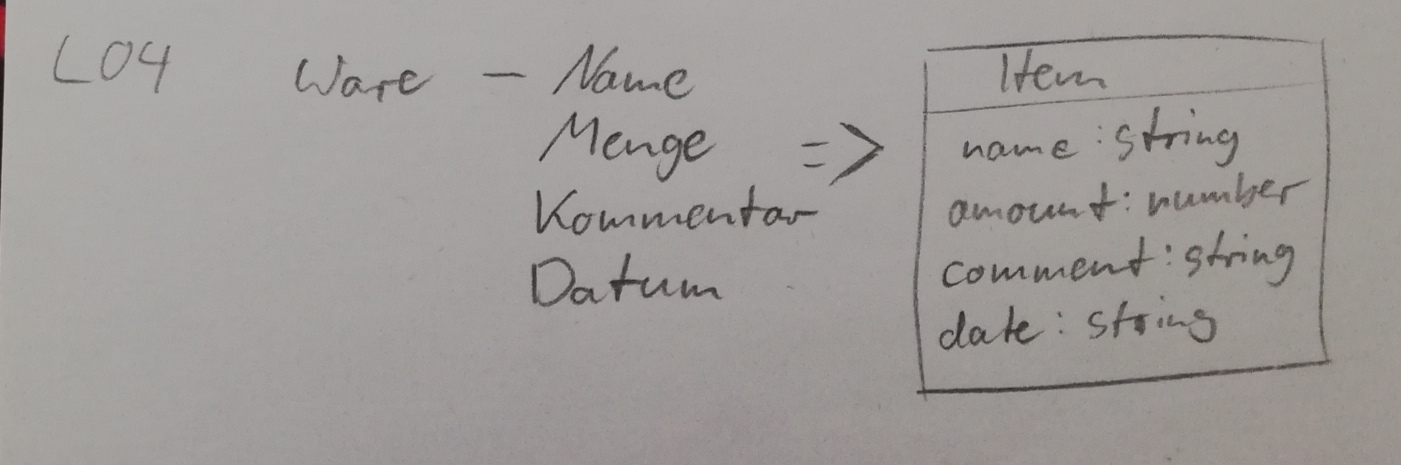 L04 Ware - Name
Menge =>
Kommentar
Datum
Item
name : string
amount : number
comment : string
date : string